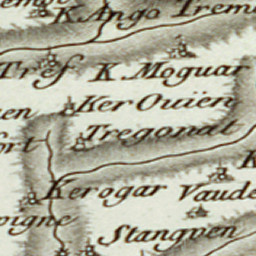 K Ango Treme
Tref K Moguar
Ker Ouïen
Tregonat
K
Kerogar Vaude
Stangven